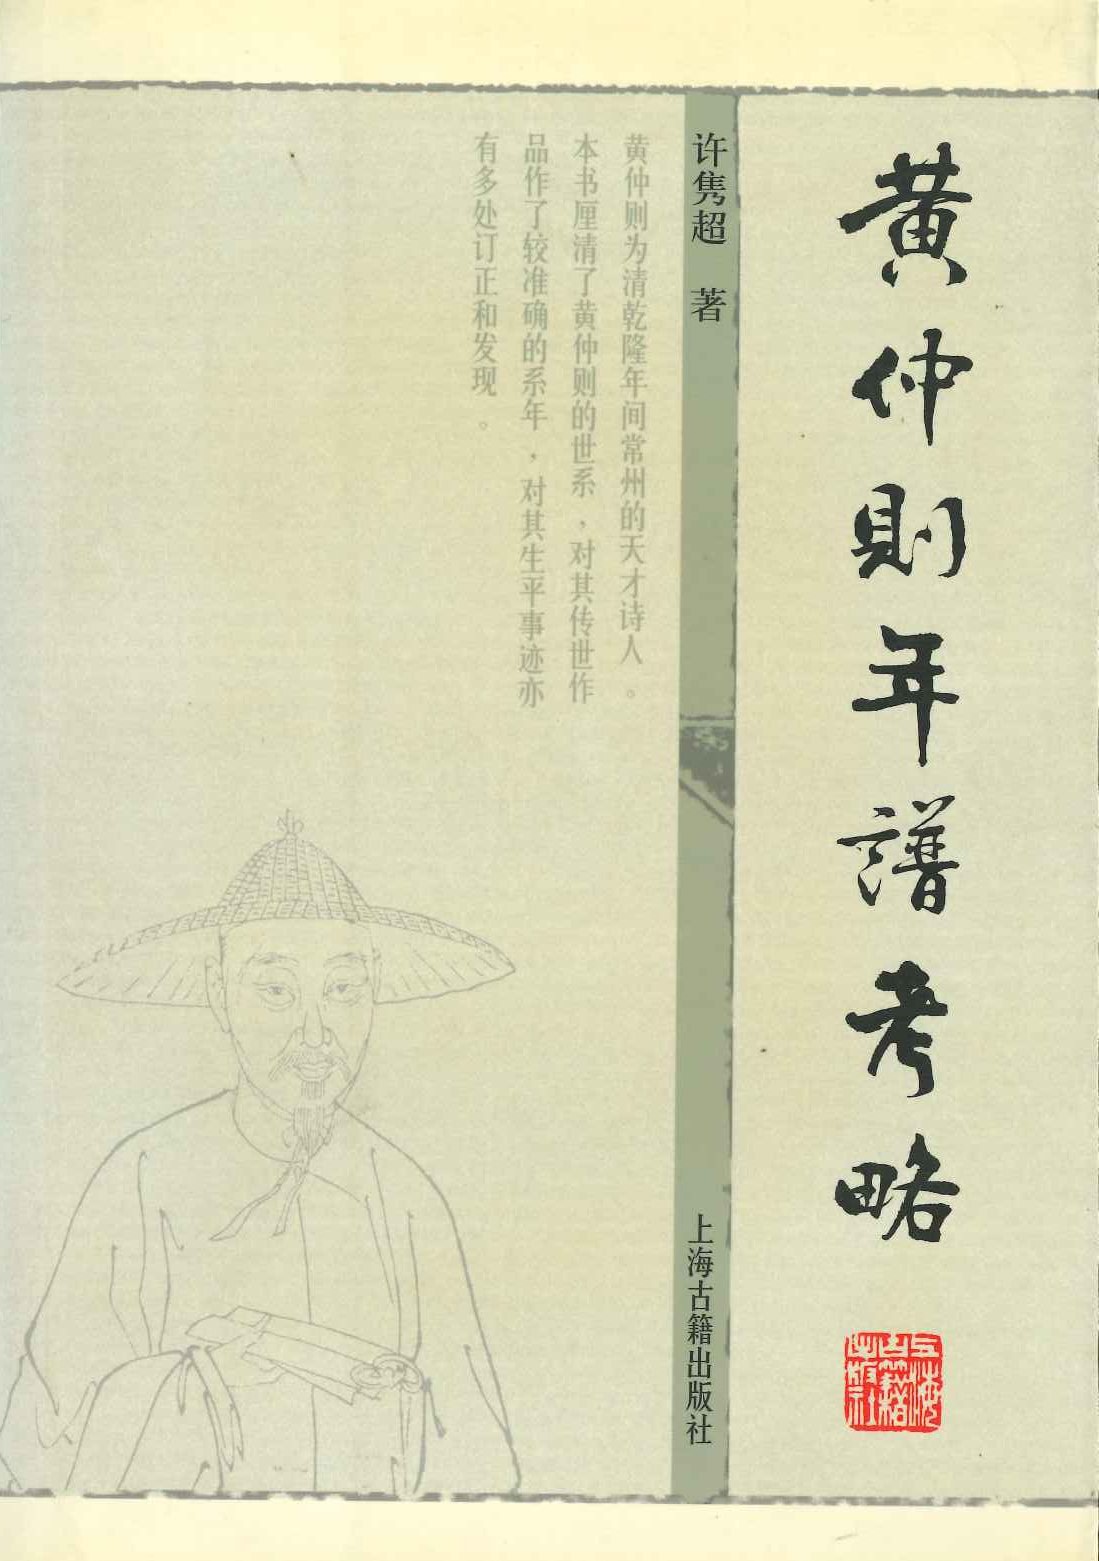 黄仲則年譜考略
许隽超 著
上海古籍出版社
黄仲则为清乾隆年间常州的天才诗人。
本书厘清了黄仲则的世系,对其传世作
品作了较准确的系年,对其生平事迹亦
有多处订正和发现。
上海古籍出版社